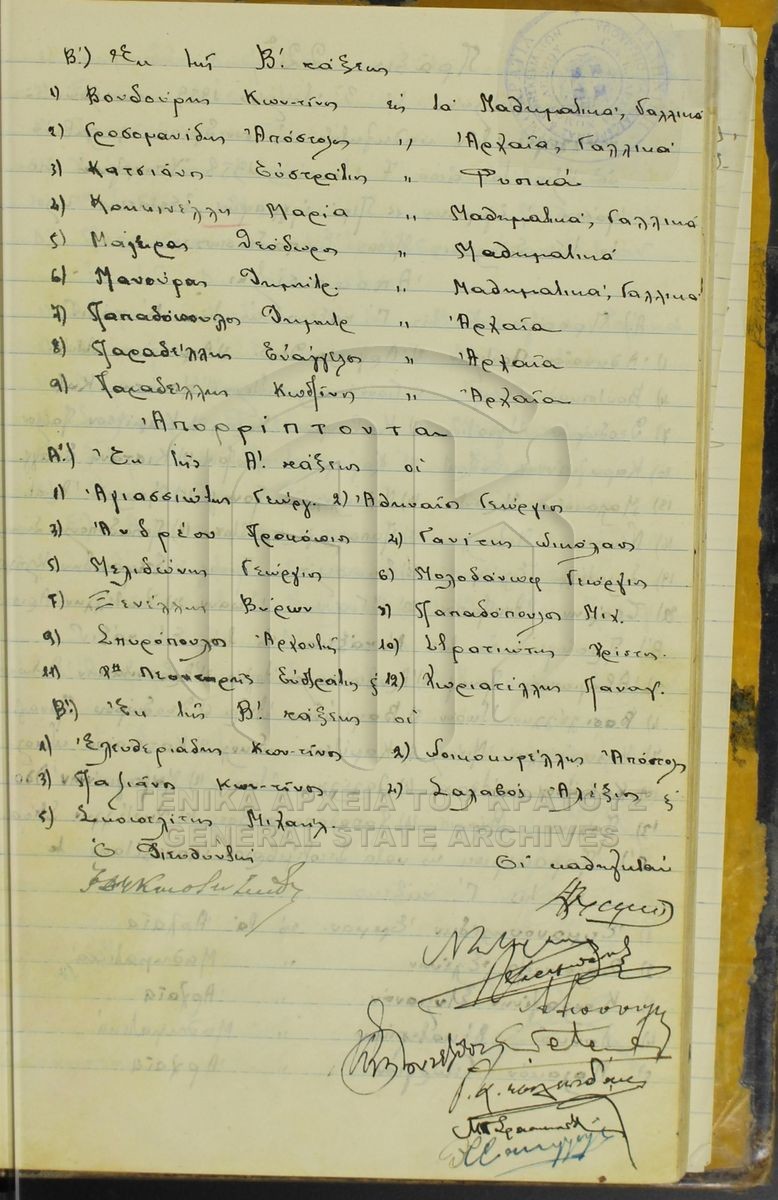 Β΄.) Ἐκ τῆς Β΄. τάξεως
1) Βουδούρης Κων-τῖνος εἰς τὰ Μαθηματικά, Γαλλικά
2) Γροσομανίδης Ἀπόστολος " Ἀρχαῖα, Γαλλικά
3) Κατσιάνης Εὐστράτιος " Φυσικά
4) Κοκκινέλλη Μαρία " Μαθηματικά, Γαλλικά
5) Μάγειρας Θεόδωρος " Μαθηματικά
6) Μανούρας Δημήτρ. " Μαθηματικά, Γαλλικά
7) Παπαδόπουλος Δημητρ " Ἀρχαῖα
8) Παραδέλλης Εὐάγγελος " Ἀρχαῖα
9) Παραδέλλης Κωστῖνης " Ἀρχαῖα
Ἀπορρίπτονται
Α΄.) Ἐκ τῆς Α΄. τάξεως οἱ
1) Ἀγιασσιώτης Γεώργ. 2) Ἀθηναῖος Γεώργιος
3) Ἀνδρέου Προκόπιος 4) Γανίτης Νικόλαος
5) Μελιδώνης Γεώργιος 6) Μολοδάνωφ Γεώργιος
7) Ξενέλλης Βύρων 8) Παπαδόπουλος Μιχ.
9) Σπυρόπουλος Ἀρχοντῆς 10) Στρατιώτης Χρίστος.
11) Εὐστράτιος 12) Χωριατέλλης Παναγ.
Β΄.) Ἐκ τῆς Β΄. τάξεως οἱ
1) Ἐλευθεριάδης Κων-τῖνος 2) Νοικοκυρέλλης Ἀπόστολος
3) Παζιάνος Κων-τῖνος 4) Σαλαβοῦ Ἀλέξιος
5) Σκοπελίτης Μιχαήλ.
Ὁ Διευθυντὴς Οἱ καθηγηταὶ
ΓΕΝΙΚΑ ΑΡΧΕΙΑ ΤΟΥ ΚΡΑΤΟΥΣ
GENERAL STATE ARCHIVES